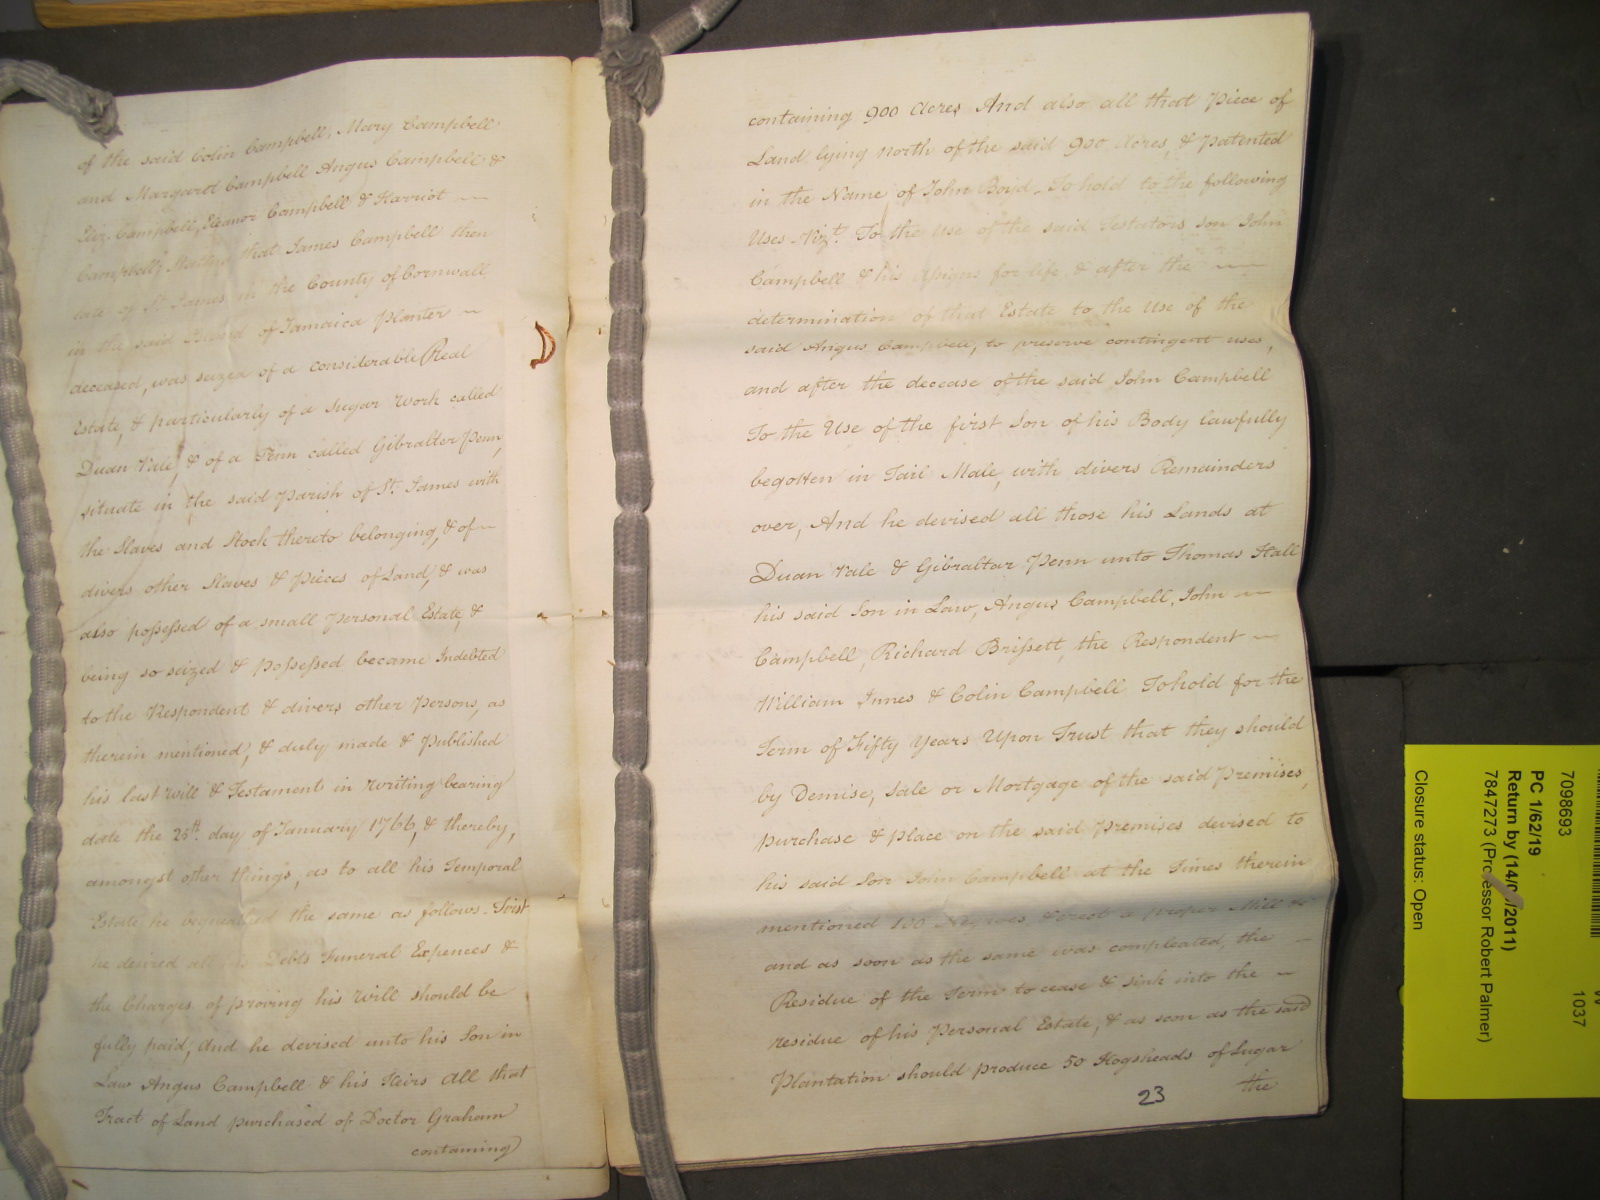 of the said Colin Campbell, Mary Campbell
and Margaret Campbell Angus Campbell &
Eliz. Campbell, Eleanor Campbell & Harriot
Campbell, that James Campbell then
late of St. James in the County of Cornwall
in the said Island of Jamaica Planter
deceased, was seized of a considerable Real
Estate, & particularly of a Sugar Work called
Duan Vale, & of a Penn called Gibralter Penn,
situate in the said Parish of St. James with
the Slaves and Stock thereto belonging, & of
divers other Slaves & Pieces of Land, & was
also possessed of a small Personal Estate, &
being so seized & possessed became Indebted
to the Respondent & divers other Persons, as
therein mentioned, & duly made & Published
his last will & Testament in writing bearing
date the 25th. day of January 1766, & thereby,
amongst other things, as to all his Temporal
Estate he bequeathed the same as follows. First
he desired all his Debts Funeral Expences &
the Charges of proving his Will should be
fully paid, And he devised unto his Son in
Law Angus Campbell & his Heirs All that
Tract of Land purchased of Doctor Graham
containing
containing 900 Acres And also all that Piece of
Land lying North of the said 900 Acres, & Patented
in the Name of John Boyd. To hold to the following
Uses Vizt. To the Use of the said Testators Son John
Campbell & his Assigns for life & after the
determination of that Estate to the Use of the
said Angus Campbell, to preserve contingent uses,
and after the decease of the said John Campbell
To the Use of the first Son of his Body lawfully
begotten in Tail Male, with divers Remainders
over, And he devised all those his Lands at
Duan Vale & Gibraltar Penn unto Thomas Hall
his said Son in Law, Angus Campbell, John
Campbell, Richard Brissett, the Respondent
William Innes & Colin Campbell To hold for the
Term of Fifty Years Upon Trust that they should
by Demise, Sale or Mortgage of the said Premises,
purchase & place on the said Premises devised to
his said Son John Campbell at the Times therein
mentioned 100 Negroes, & erect a proper Mill &c
and as soon as the same was compleated, the
Residue of the Term to cease & sink into the
residue of his Personal Estate, & as soon as the said
Plantation should produce 50 Hogsheads of Sugar
the
23
7098693
1037
PC 1/62/19
Return by (14/ /2011)
7847273 (Professor Robert Palmer)
Closure status: Open